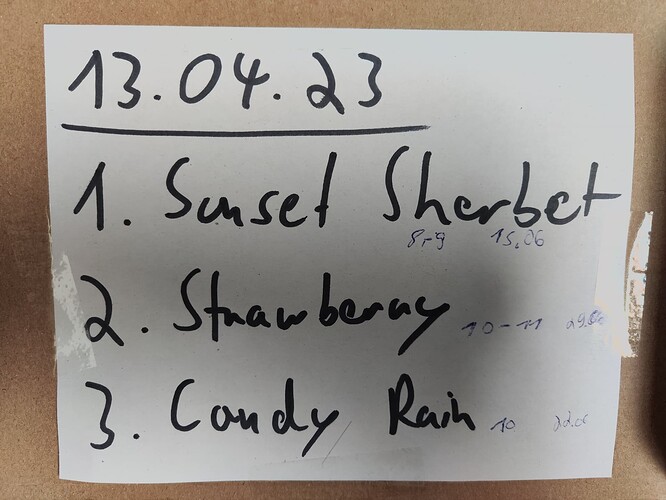 13.04.23
1. Sunset Sherbet
8-9 15.06
2. Strawberry 10-11
3. Candy Rain 10